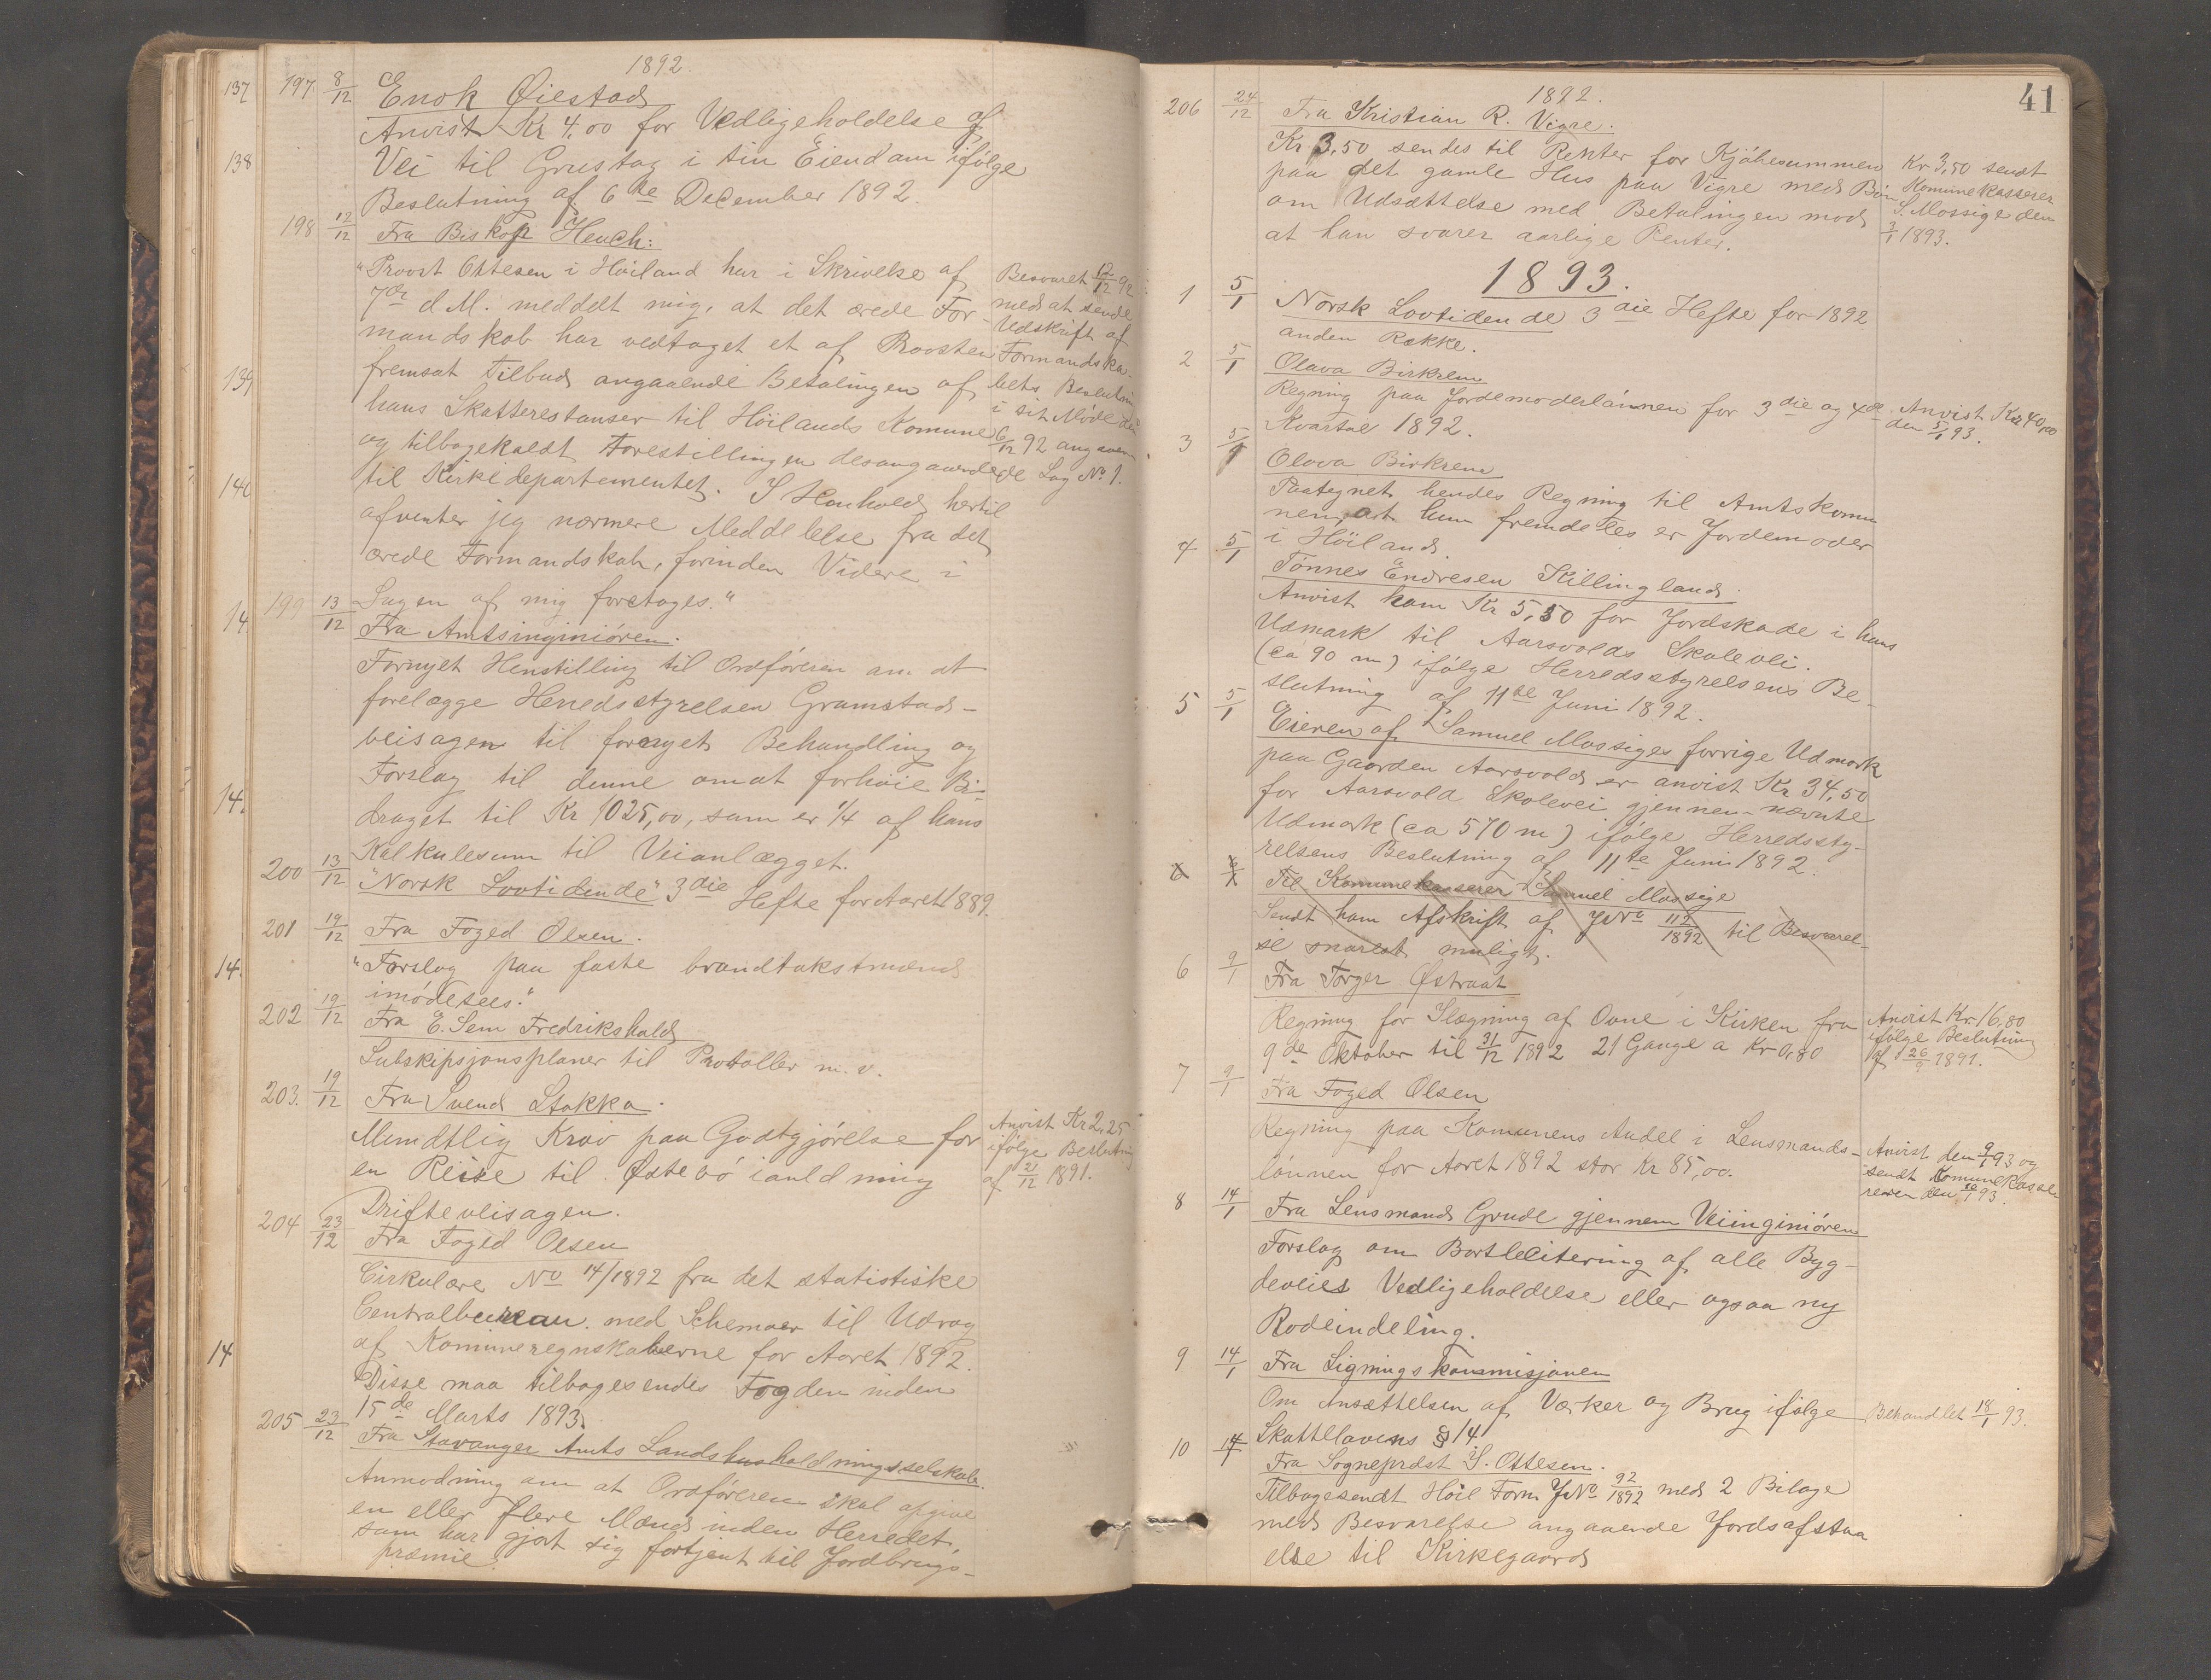 1892.
197. 8/12 Enok Øiestad
Anvist Kr 4.00 for Vedligeholdelse af
Vei til Grustag i sin Eiendam ifølge
Beslutning af 6te December 1892.
198 12/12 Fra Biskop Heuch:
"Provst Ottesen i Høiland har i Skrivelse af
7de d M. meddelt mig, at det ærede For-
mandskab har vedtaget et af Provsten
fremsat Tilbud angaaende Betalingen af
hans Skatterestanser til Høilands Komune
og tilbagekaldt Forestillingen desangaaende
til Kirkedepartementet. I Henhold hertil
afventer jeg nærmere Meddelelse fra det
ærede Formandskab, forinden Videre i
Sagen af mig foretages."
Besvaret 12/12 92
med at sende
Udskrift af
Formandska-
bets Beslutning
i sit Møde den
6/12 92 angaaen
de Sag No 1.
199 13/12 Fra Amtsinginiøren.
Fornyet Henstilling til Ordføreren om at
forelægge Herredsstyrelsen Gramstads-
veisagen til fornyet Behandling og
Forslag til denne om at forhøie Bi-
draget til Kr 1025,00, som er 1/4 af hans
Kalkulesum til Veianlægget.
200 13/12 "Norsk Lovtidende" 3die Hefte for Aaret 1889.
201 19/12 Fra Foged Olsen.
"Forslag paa faste brandtakstmænd
imødesees."
202 19/12 Fra E. Sem Fredrikshald
Subskipsjonsplaner til Protoller m.v.
203. 19/12 Fra Svend Stokka.
Mundtlig Krav paa Godtgjørelse for
en Reise til Østebø i anldning
Drifteveisagen.
Anvist Kr 2,25
ifølge Beslutning
af 21/12 1891.
204 23/12 Fra Foged Olsen
Cirkulære No 14/1892 fra det statistiske
Centralbureau med Schemaer til Udrag
af Komuneregnskaberne for Aaret 1892.
Disse maa tilbagesendes Fogden inden
15de Marts 1893.
205 23/12 Fra Stavanger Amts Landshusholdningsselskab.
Anmodning om at Ordføreren skal opgive
en eller flere Mænd inden Herredet,
som har gjort sig fortjent til Jordbrugs-
præmie.
137
138
139
140
14
14.
14.
14
41
1892.
206 24/12 Fra Kristian R. Vigre.
Kr 3,50 sendes til Renter for Kjøbesummen
paa det gamle Hus paa Vigre med Bøn
om Udsættelse med Betalingen mod
at han svarer aarlige Renter.
Kr 3,50 sendt
Komunekasserer
S. Mossige den
3/1 1893.
1893.
1 5/1 Norsk Lovtidende 3die Hefte for 1892
anden Række.
2 5/1 Olava Birkrem
Regning paa Jordemoderlønnen for 3die og 4de
Kvartal 1892.
Anvist Kr 40,00
den 5/1 93.
3 5/1 Olava Birkrem
Paategnet hendes Regning til Amtskomu
nen, at hun fremdeles er Jordemoder
i Høiland.
4 5/1 Tønnes Endresen Skillingland.
Anvist ham Kr 5,50 for Jordskade i hans
Udmark til Aarsvolds Skolevei.
(ca 90 m) ifølge Herredsstyrelsens Be-
slutning af 11te Juni 1892.
5 5/1 Eieren af Samuel Mossiges forrige Udmark
paa Gaarden Aarsvold er anvist Kr 34,50
for Aarsvold Skolevei gjennem nævnte
Udmark (ca 570 m) ifølge Herredssty-
relsens Beslutning af 11te Juni 1892.
6 Til Komunekasserer Samuel Mossige
Sendt ham Afskrift af JNo 112/1892 til Besvarel-
se snarest muligt.
6 9/1 Fra Torger Østraat
Regning for Ilægning af Ovne i Kirken fra
9de Oktober til 31/12 1892 21 Gange a Kr 0,80
Anvist Kr 16,80
ifølge Beslutning
af 26/9 1891.
7 9/1 Fra Foged Olsen
Regning paa Komunens Andel i Lensmands-
lønnen for Aaret 1892 stor Kr 85,00.
Anvist den 9/1 93 og
sendt Komunekasse-
reren den 10/1 93.
8 14/1 Fra Lensmand Grude gjennem Veiinginiøren
Forslag om Bortlicitering af alle Byg-
deveies Vedligeholdelse eller ogsaa ny
Rodeindeling.
9 14/1 Fra Ligningskommisjonen
Om Ansættelsen af Værker og Brug ifølge
Skattelovens § 14
Behandlet 18/1 93.
10 14/1 Fra Sogneprdst S. Ottesen.
Tilbagesendt Høil Form JNo 92/1892 med 2 Bilage
med Besvarelse angaaende Jordsafstaa
else til Kirkegaard